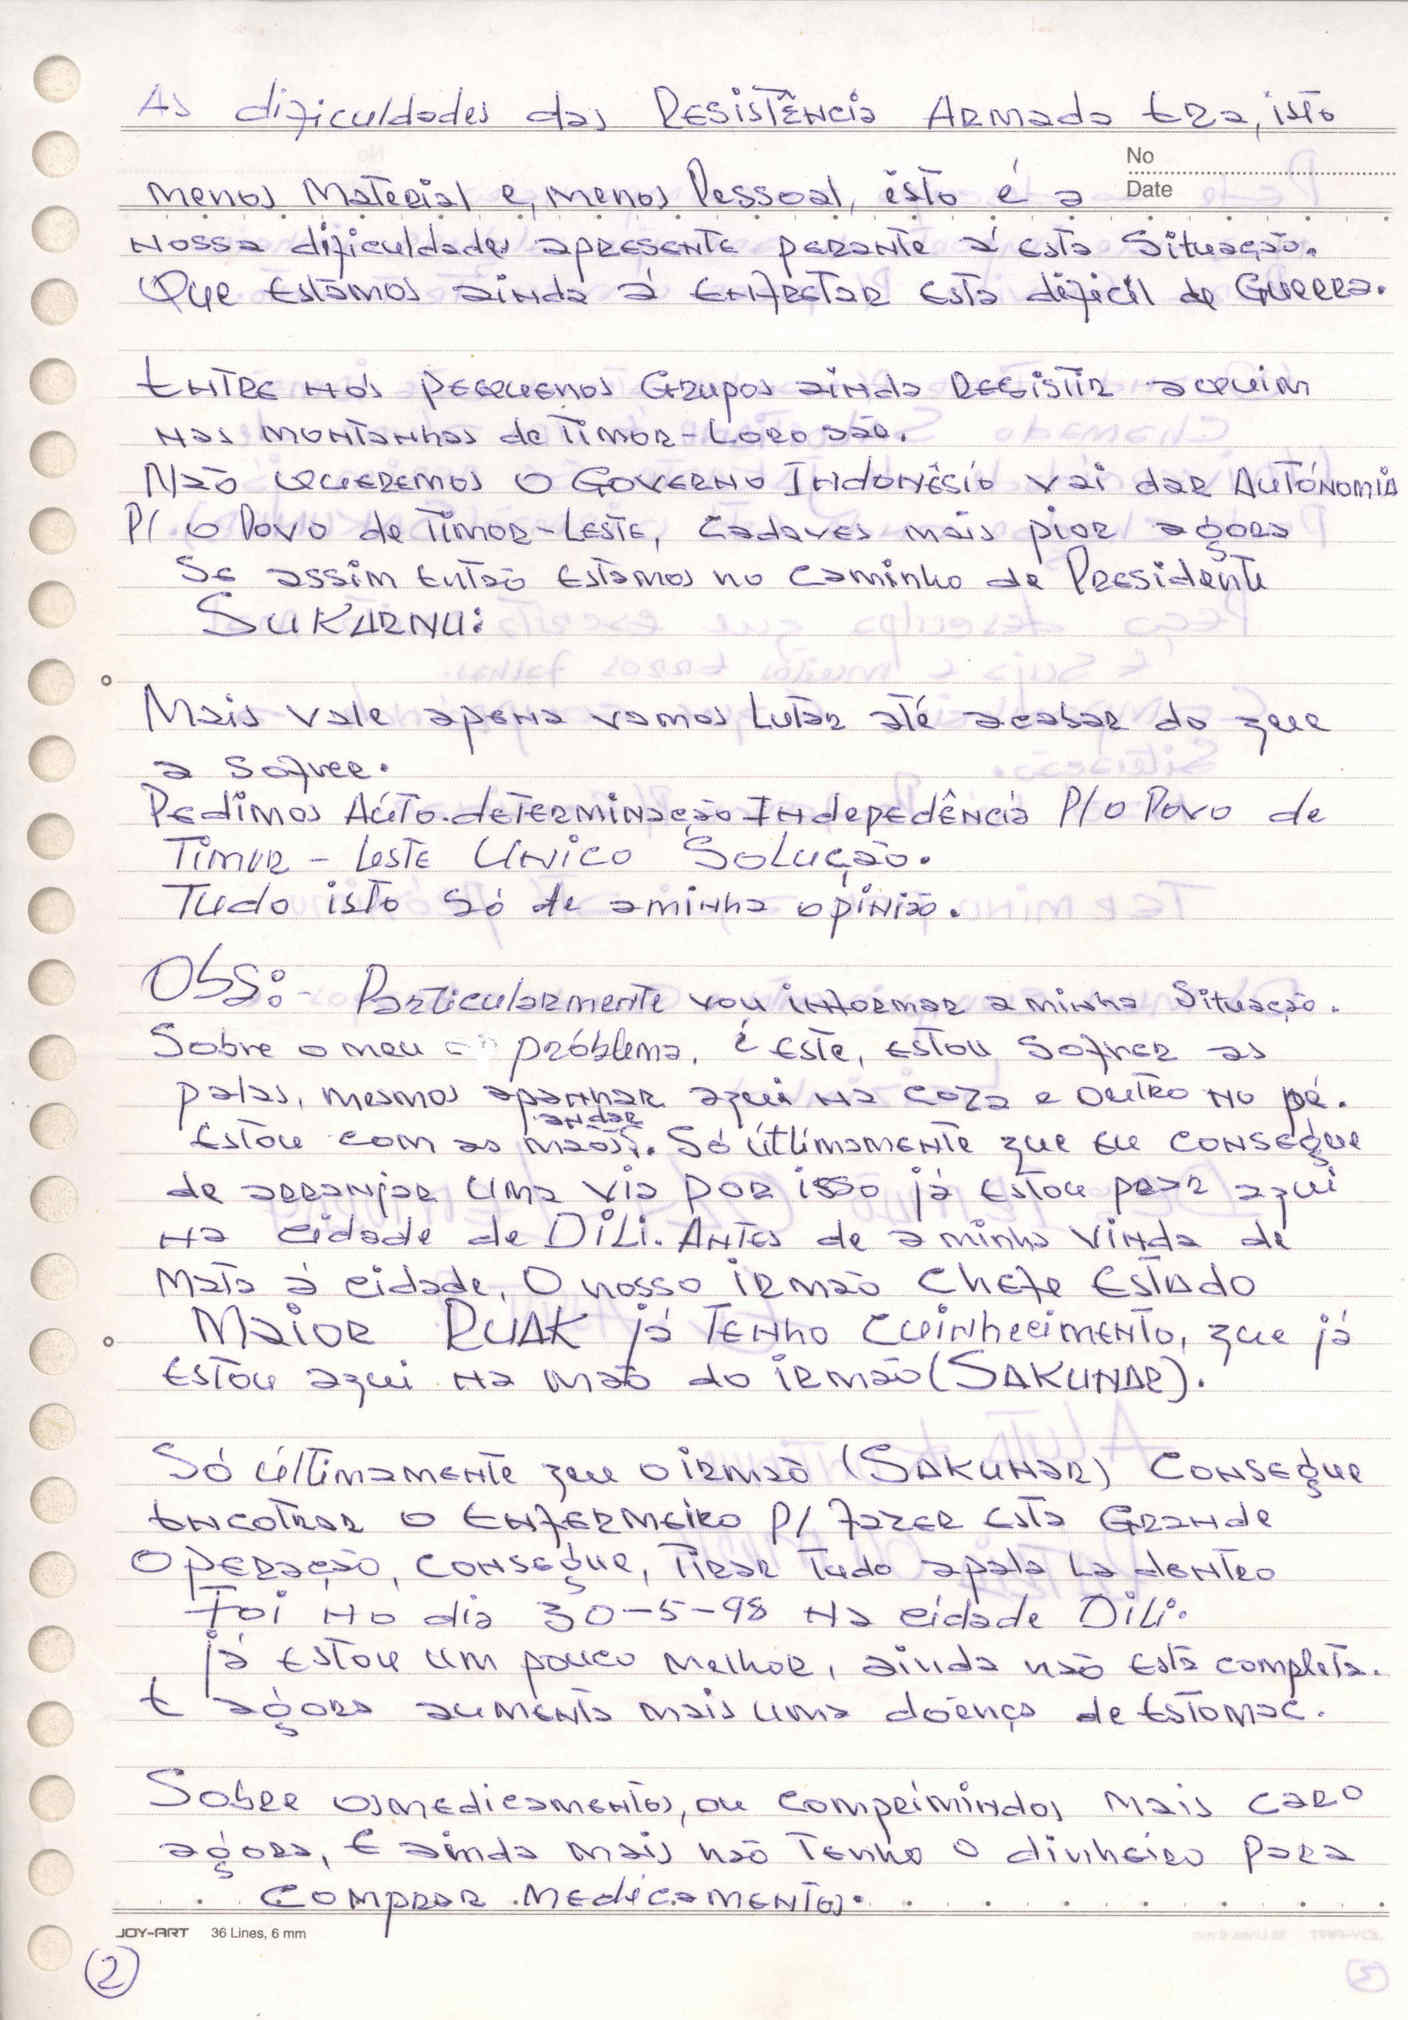 As dificuldades das Resistência Armada Era, isto
No
menos Material e, menos Pessoal, ësto é a
Date
nossa dificuldades apresente perante á esta Situação.
Que Estámos ainda á Enfretar Esta dificil de Guerra.
Entre nós pequenos Grupos ainda Resistir aquim
nas montanhas de Timor-Loro são.
Não queremos o Governo Indonêsio vai dar Autónomia
P/ o Povo de Timor-Leste, Cadaves mais pior agora
Se assim Então Estamos no Caminho de Presidente
SUKARNU:
Mais vale apena vamos Lutar até acabar do que
a sofrer.
Pedimos Aúto-determinação Indepedência P/o Povo de
Timor-Leste Único Solução.
Tudo isto só de aminha opinião.
Obs:- Particularmente vou informar aminha Situação.
Sobre o meu próblema, é este, estou sofrer as
palas, mesmos apanhar aqui na coza e outro no pé.
andar
Estou com as mãos. Só últimamente que eu consegue
de arranjar uma via por isso já estou por aqui
na cidade de Dili. Antes de aminha vinda de
Mata á cidade, O nosso irmão Chefe Estado
Maior RUAK já Tenho Cuinhecimento, que já
estou aqui na mão do irmão (SAKUNAR).
Só últimamente que o irmão (SAKUNAR) Consegue
Encotrar o Enfermeiro P/ fazer Esta Grande
Operação, Consegue, Tirar Tudo apala La dentro
Foi no dia 30-5-98 na cidade Dili.
já Estou um pouco Melhor, ainda não Está completa.
E agora aumenta mais uma dôença de Estomac.
Sobre osmedicamentos, ou Comprimindos Mais Caro
agora, E ainda mais não Tenho o dinheiro Para
Comprar Medicamentos.
JOY-ART 36 Lines, 6 mm
2